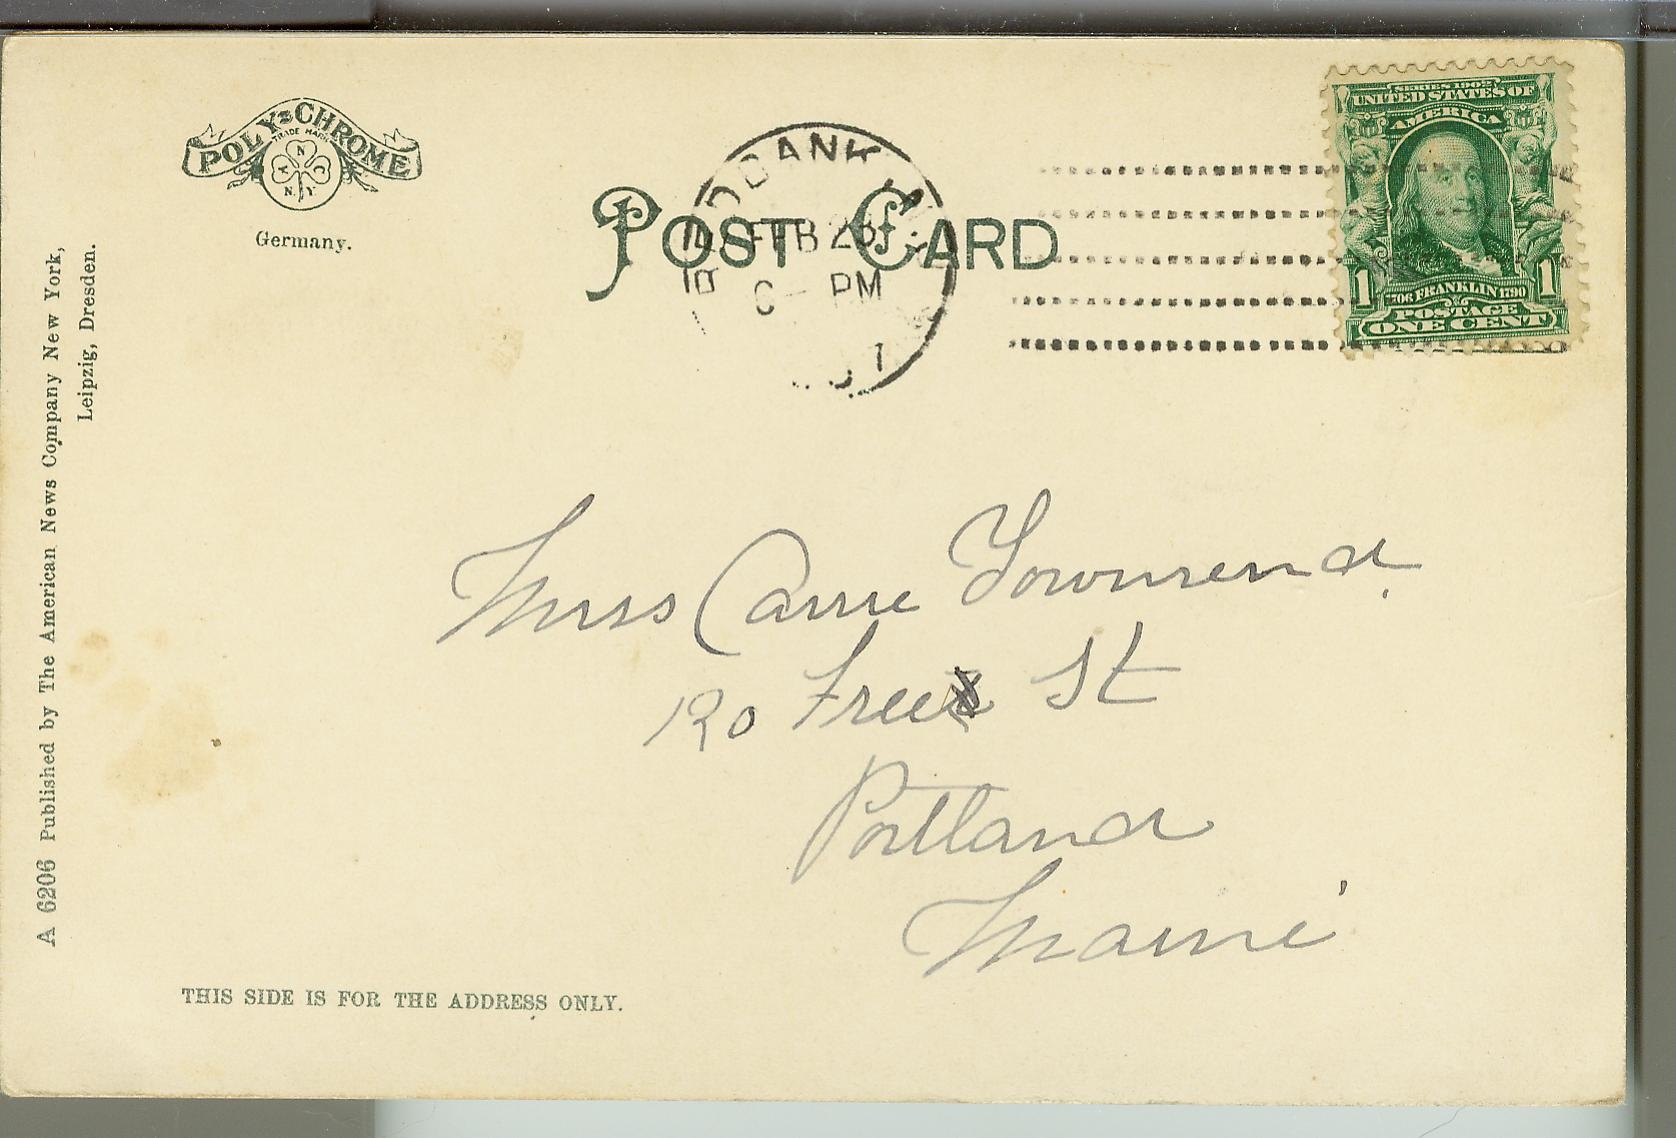 POLY-CHROME
TRADE MARK
A N C
N.Y.
Germany.
POST CARD
FEB 28
PM
SERIES 1902
UNITED STATES OF
AMERICA
1 1
1706 FRANKLIN 1790
POSTAGE
ONE CENT
A 6206 Published by The American News Company New York,
Leipzig, Dresden.
Miss Carrie Townsend.
120 Free St
Portland
Maine
THIS SIDE IS FOR THE ADDRESS ONLY.